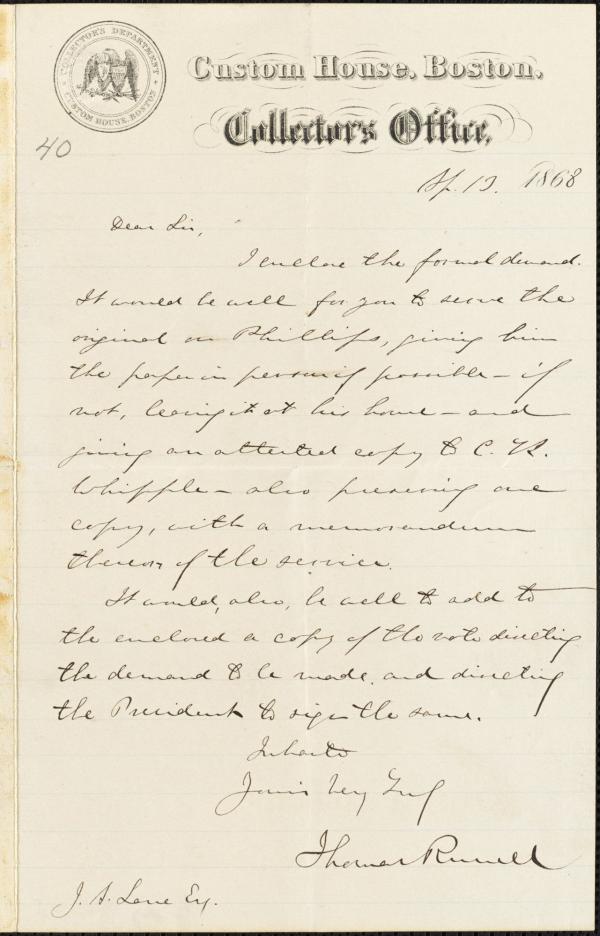 COLLECTOR'S DEPARTMENT
CUSTOM HOUSE, BOSTON
Custom House, Boston.
Collector's Office,
40
Ap. 13. 1868
Dear Sir,
I enclose the formal demand.
It would be well for you to serve the
original on Phillips, giving him
the paper in person if possible – if
not, leaving it at his home – and
giving an attested copy to C. K.
Whipple – also preserving one
copy, with a memorandum
thereon of the service.
It would, also, be well to add to
the enclosed a copy of the vote directing
the demand to be made, and directing
the President to sign the same.
In haste
Yours very truly
Thomas Russell
J. A. Lane Esq.